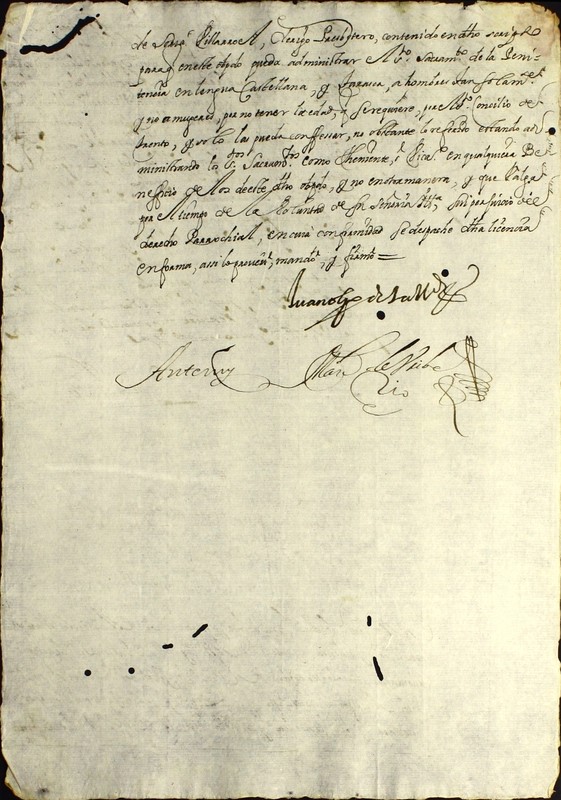 de Villarroel, Clerigo Presbytero, contenido en dho scripto
para q en este obpdo pueda administrar el Sto. Sacramto. de la Peni-
tencia en lengua Castellana, y Tarasca, a hombres tan solamte.
y no a mugeres, por no tener la edad, q se requiere, por el Sto. Concilio de
Trento, y solo las pueda confessar, no obstante lo referido estando ad-
ministrando los Stos. Sacramtos. como Theniente, en qualquiera Be-
neficio de los deste dho obpdo, y no en otra manera, y que valga
por el tiempo de la Voluntad de su Señoria Illma, sin perjuicio del
derecho Parrochial, en cuia conformidad se despache dha licencia
en forma, assi lo proveió, mandó, y firmó =
Juan
Ante my
de